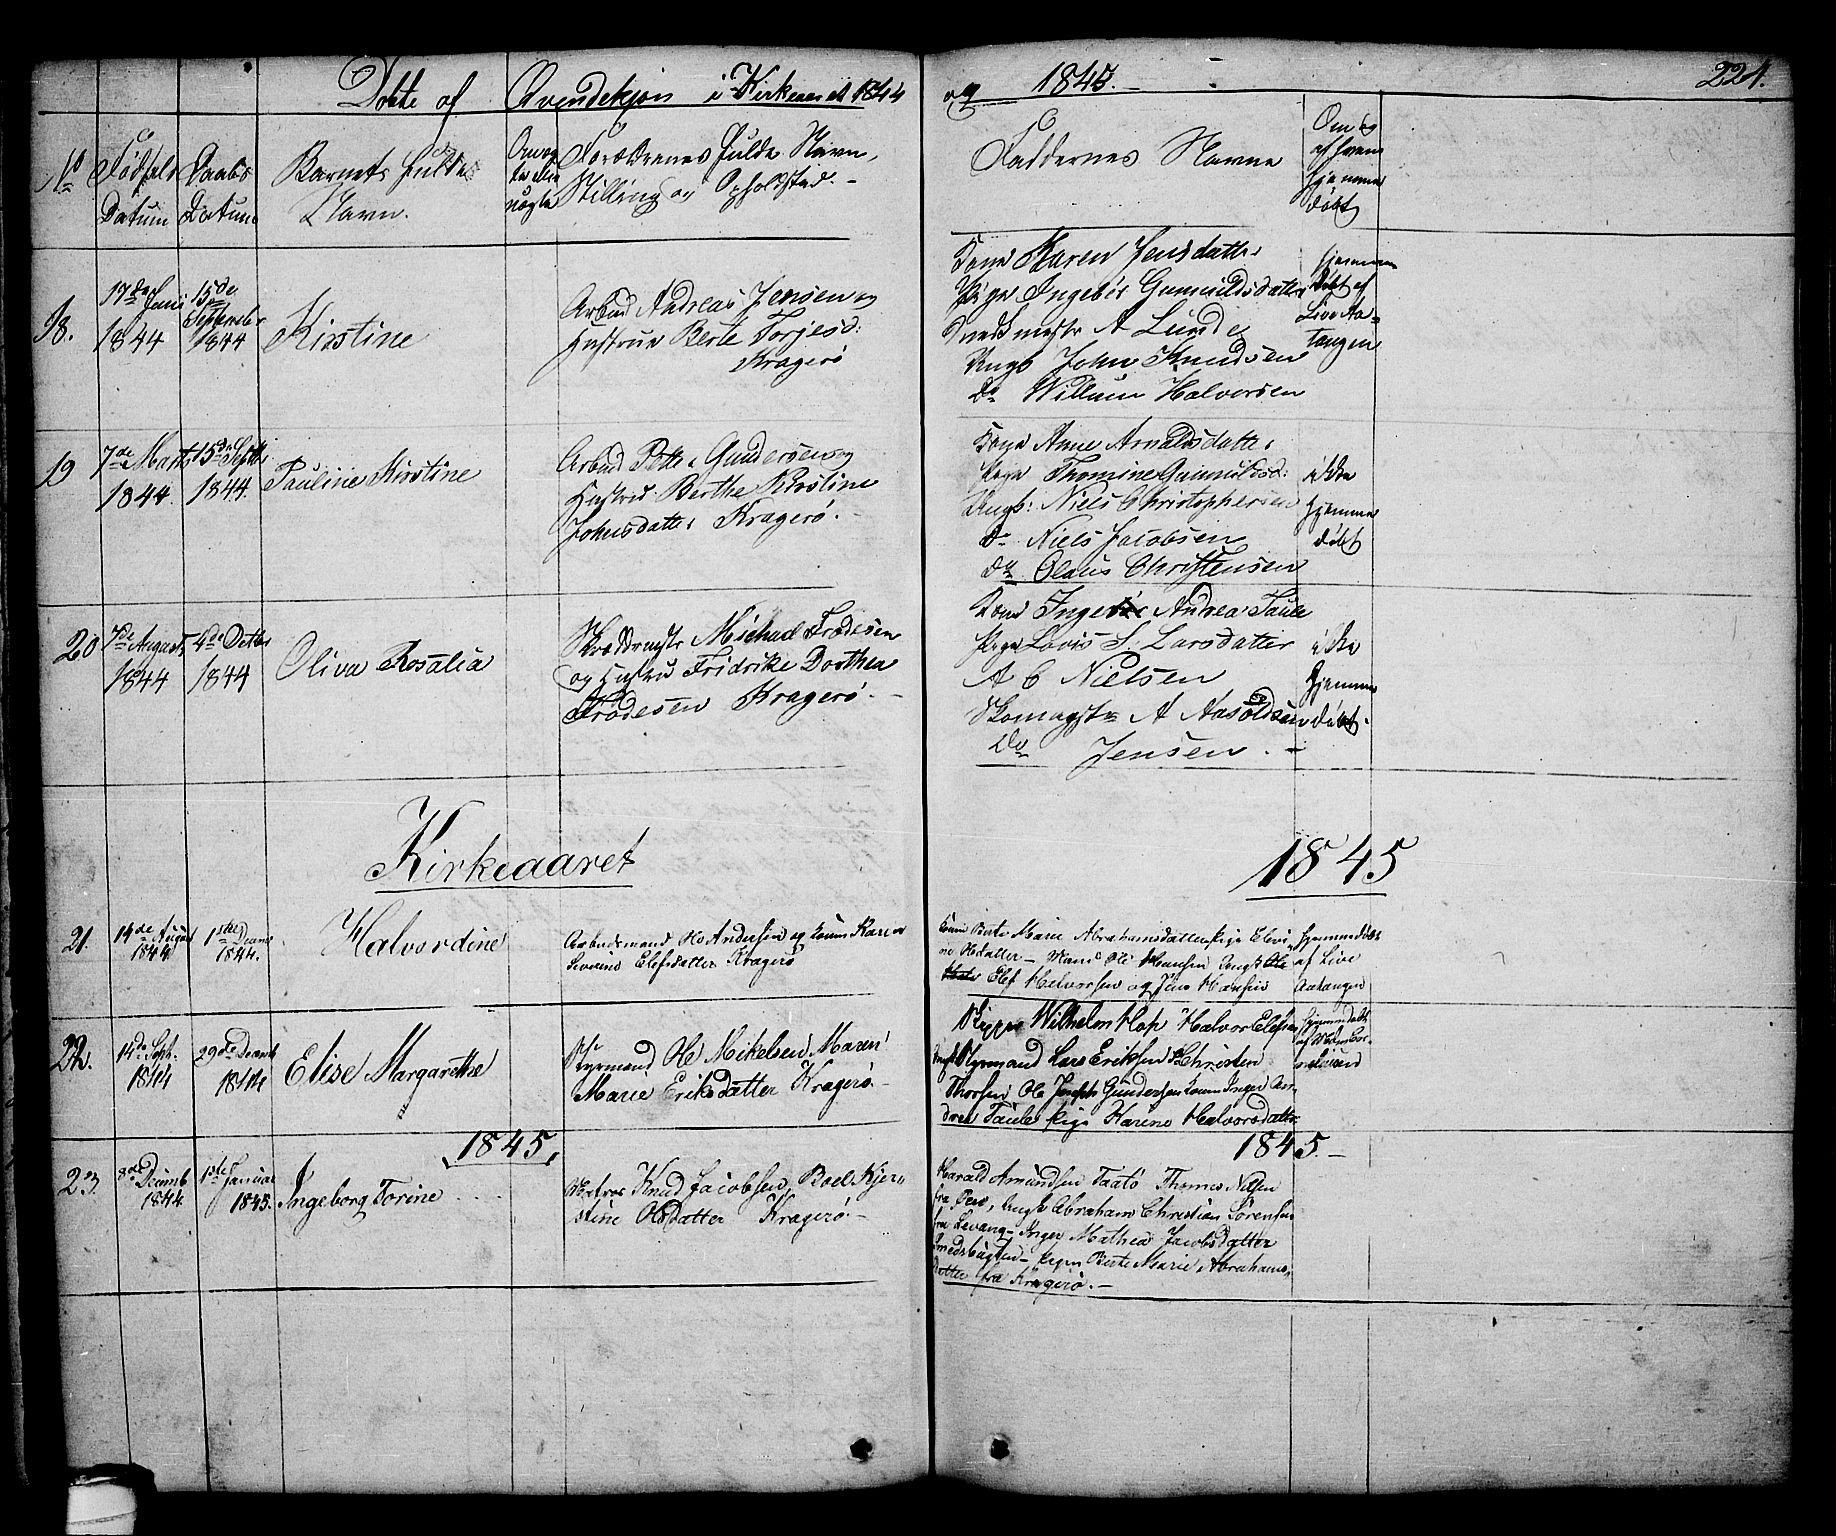 Döbte af Qvindekjøn i Kirkeaaret 1844 og 1845.
221.
No
Fødsels Datum
Daabs Datum
Barnets fulde Navn.
Foræeldrenes fulde Navn,
Stilling og Opholdsted. -
Faddernes Navne
Om og af hvem hjemme döbt
18.
17de Juni 1844
15de September 1844
Kirstine
Arbmd Andreas Jensen og
Hustrue Berte Torjesd:
Kragerö
Kone Karen Jensdatter
Pige Ingebör Gumuldsdatter
Snedkmestr A Lunde
Ungk John Knudsen
do Willum Halvorsen
hjemme
döbt af
Live Aa=
tangen
19
7de Marts 1844.
15de Septbr 1844.
Pauline Kirstine
Arbmd Petter Gundersen og
Hustru Berthe Kirstine
Johnsdatter Kragerö. -
Kone Anne Arnoldsdatter
Pige Thomine Gumuldsd:
Ungk: Niels Christophersen
do Niels Jacobsen
do Olaus Christensen
ikke
hjemme
döbt
20
7de August 1844
4de Octbr 1844
Oliva Rosalia
Skreddrmestr Michael Frodesen
og Hustru Fridrike Dorthea
Frodesen Kragerö. -
Kone Ingebör Andrea Taule
Pige Lovis S. Larsdatter
A C Nielsen
Skomagstr A Aasoldsen
do Jensen. -
ikke
hjemme
döbt.
Kirkeaaret 1845
21.
14de August 1844
1ste Decemb 1844.
Halvordine
Arbeidsmand Ole Andersen og Konn Karen
Severine Elefsdatter Kragerö
Konn Berte Marie Abrahamsdatter pige Elevi
ne Olsdatter - Mand Ole Hansen Ungk Ole
Elef Halvorsen og Jens Hansen
hjemmedöbt
af Live
Aatangen
22.
14de Sept. 1844
29de Decemb 1844
Elise Margarethe
Styrmand Ole Mikelsen Maren
Marie Eriksdatter Kragerö. -
Skipper Wilhelm Hop Halvor Elefsen
Styrmand Lars Eriksen Christen
Thorsen Ole Joseph Gundersen Konn Inger An-
drea Taule pige Karine Halvorsdatter
hjemmedöbt
1845.
1845. -
23.
8de Decemb 1844
1ste Januar 1845.
Ingeborg Torine
Knud Jacobsen, Boel Kjer=
stine Olsdatter Kragerö. -
Harald Amundsen Taatö Thomas Nilsen
fra Ungk Abraham Christian Sörensen
fra Levang - Inger Mathea Jacobsdatter
Smedsbugten - pigen Berte Marie Abrahams-
datter fra Kragerö. -